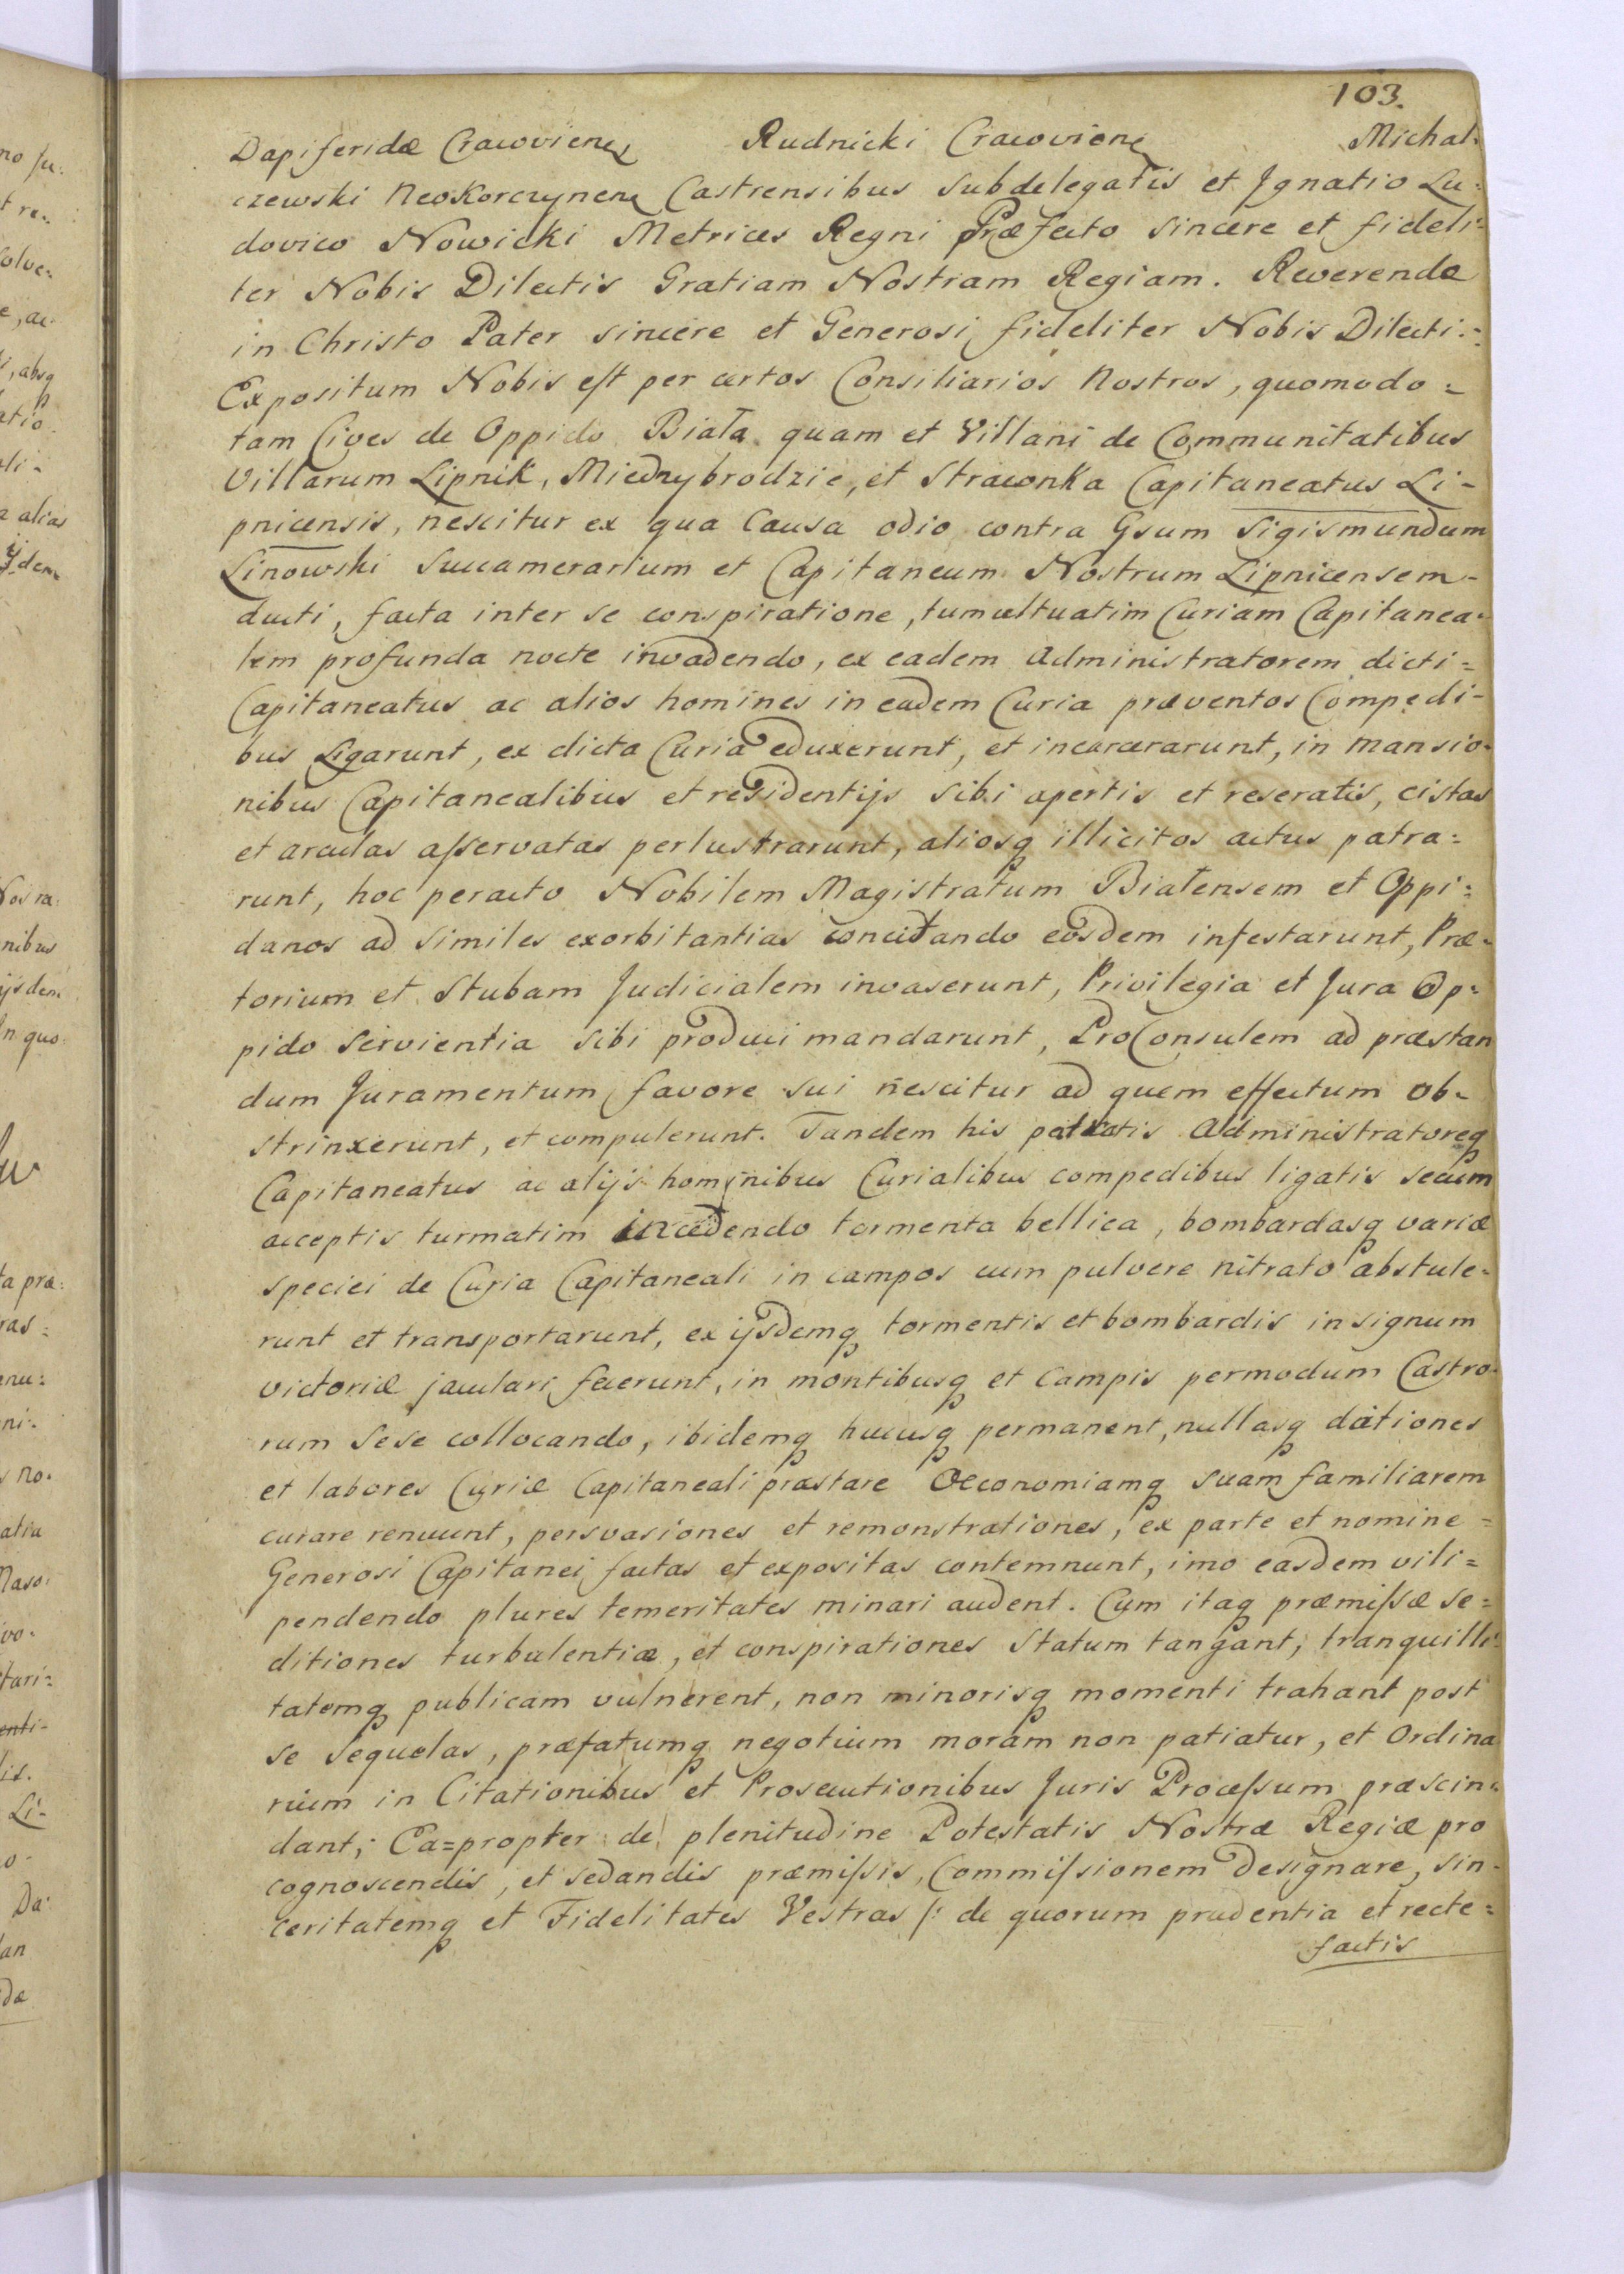 103.
Dapiferidæ Cracovienꝫ Rudnicki Cracovienꝫ Michal-
czewski Neokorczynenꝫ Castrensibus Subdelegatis et Jgnatio Lu-
dovico Nowicki Metrices Regni Præfecto sincere et fideli-
ter Nobis Dilectis Gratiam Nostram Regiam. Reverende
in Christo Pater sincere et Generosi fideliter Nobis Dilecti.-
Expositum Nobis est per certos Consiliarios Nostros, quomodo =
tam Cives de Oppido Biała quam et Villani de Communitatibus
Villarum Lipnik, Miedzybrodzie, et Straconka Capitaneatus Li-
pnicensis, nescitur ex qua Causa odio contra Gsum Sigismundum
Linowski Succamerarium et Capitaneum Nostrum Lipnicensem -
ducti, facta inter se conspiratione, tumultuatim Curiam Capitanea-
lem profunda nocte invadendo, ex eadem Administratorem dicti =
Capitaneatus ac alios homines in eadem Curia præventos Compedi-
bus Ligarunt, ex dicta Curia eduxerunt, et incarcerarunt, in mansio-
nibus Capitanealibus et residentijs sibi apertis et reseratis, cistas
et arculas asservatas perlustrarunt, aliosq illicitos actus patra=
runt, hoc peracto Nobilem Magistratum Białensem et Oppi=
danos ad similes exorbitantias concitando eosdem infestarunt, Præ-
torium et Stubam Judicialem invaserunt, Privilegia et Jura Op=
pido servientia sibi produci mandarunt, ProConsulem ad præstan
dum Juramentum favore sui nescitur ad quem effectum ob-
strinxerunt, et compulerunt. Tandem his patratis Administratoreq
Capitaneatus ac alijs hominibus Curialibus compedibus ligatis secum
acceptis turmatim incedendo tormenta bellica, bombardasq variæ
speciei de Curia Capitaneali in campos cum pulvere nitrato abstule-
runt et transportarunt, ex ijsdemq tormentis et bombardis in signum
victoriæ jaculari fecerunt, in montibusq et Campis permodum Castro-
rum sese collocando, ibidemq hucusq permanent, nullasq dationes
et labores Curiæ Capitaneali præstare Oeconomiamq suam familiarem
curare renuunt, persvasiones et remonstrationes, ex parte et nomine =
Generosi Capitanei factas et expositas contemnunt, imo easdem vili=
pendendo plures temeritates minari audent. Cum itaq præmissæ se=
ditiones turbulentiæ, et conspirationes Statum tangant, tranquilli-
tatemq publicam vulnerent, non minorisq momenti trahant post
se sequelas, præfatumq negotium moram non patiatur, et Ordina
rium in Citationibus et Prosecutionibus Juris Processum præscin-
dant; Ea=propter de plenitudine Potestatis Nostræ Regiæ pro
cognoscendis, et sedandis præmissis, Commissionem designare, sin-
ceritatemq et Fidelitates Vestras /: de quorum prudentia et recte=
factis